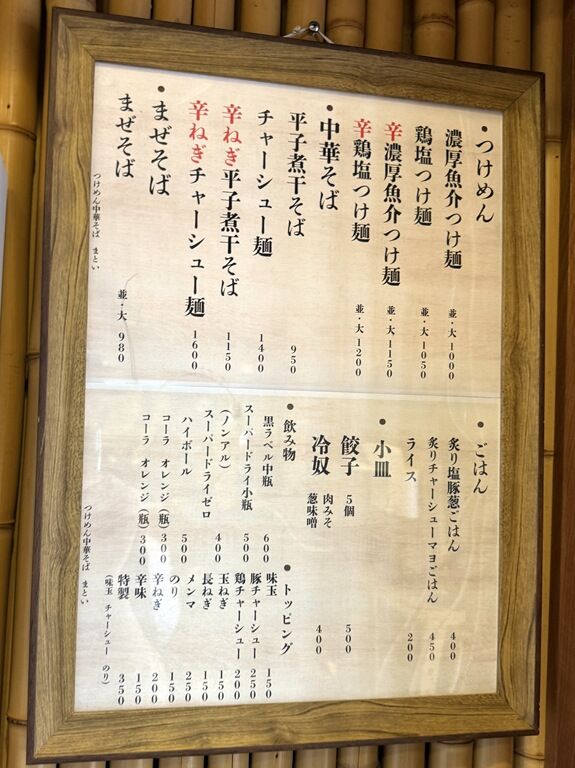 ・つけめん
濃厚魚介つけ麺 並・大 1000
鶏塩つけ麺 並・大 1050
辛濃厚魚介つけ麺 並・大 1150
辛鶏塩つけ麺 並・大 1200
・中華そば
平子煮干そば 950
チャーシュー麺 1400
辛ねぎ平子煮干そば 1150
辛ねぎチャーシュー麺 1600
・まぜそば
まぜそば 並・大 980
つけめん中華そば まとい
・ごはん
炙り塩豚葱ごはん 400
炙りチャーシューマヨごはん 450
ライス 200
・小皿
餃子 5個 500
冷奴 肉みそ 葱味噌 400
・飲み物
黒ラベル中瓶 600
スーパードライ小瓶 500
(ノンアル)
スーパードライゼロ 400
ハイボール 500
コーラ オレンジ (瓶) 300
コーラ オレンジ (瓶) 300
・トッピング
味玉 150
豚チャーシュー 250
鶏チャーシュー 200
玉ねぎ 150
長ねぎ 150
メンマ 250
のり 150
辛ねぎ 200
辛味 150
特製 350
(味玉 チャーシュー のり)
つけめん中華そば まとい